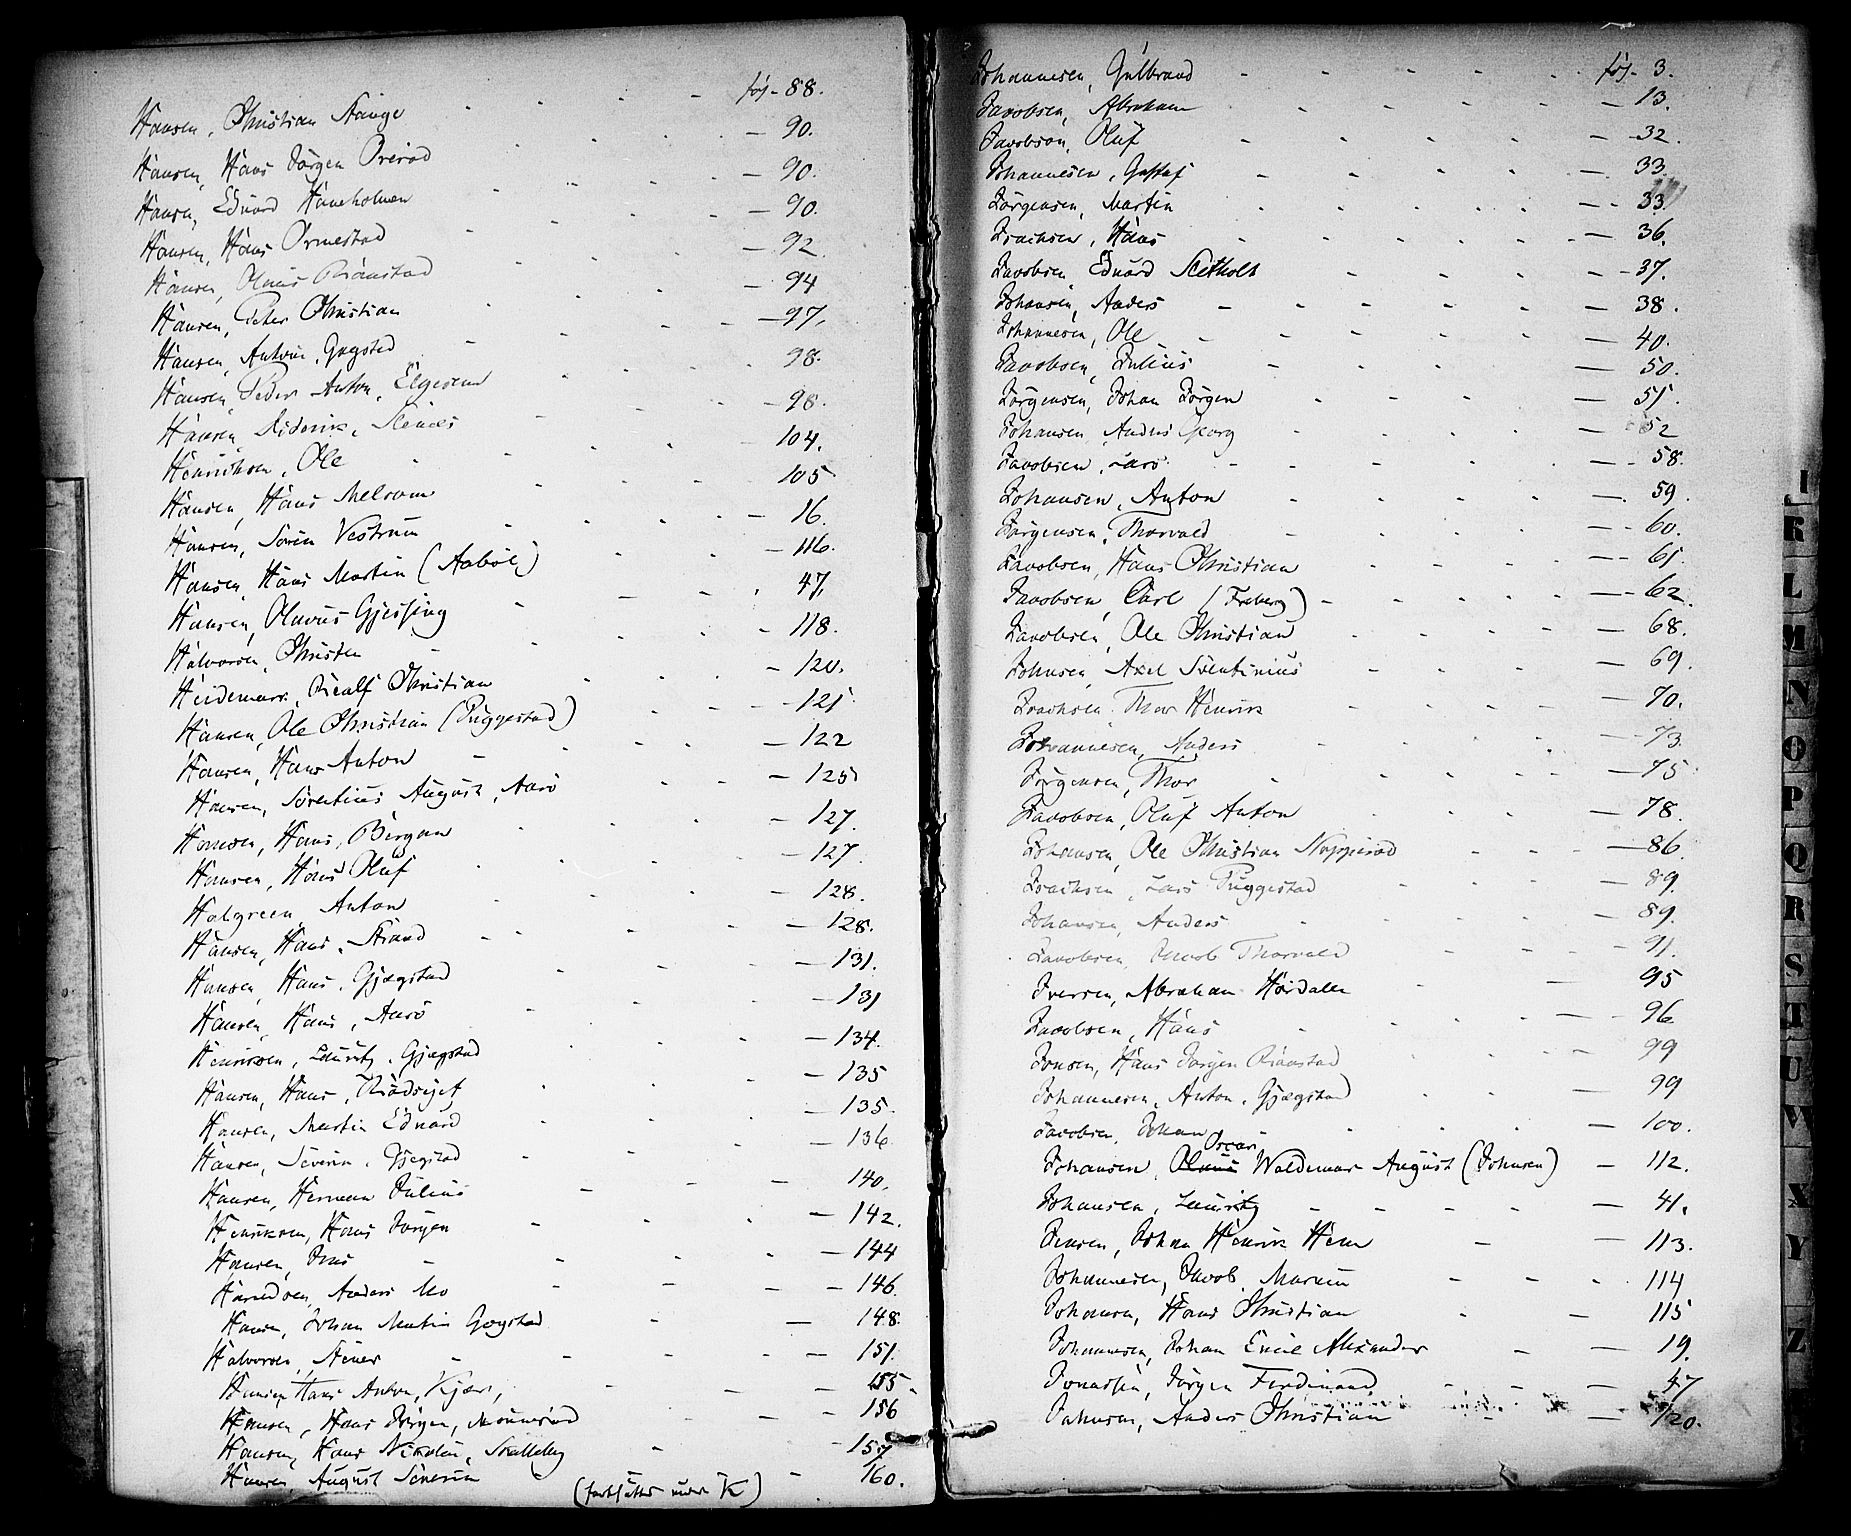 Hansen, Christian Stange fol. 88.
Hansen, Hans Jörgen 90.
Hansen, Edvard Haneholmen 90.
Hansen, Hans Ormestad 90.
Hansen, Olaus Raastad 92.
Hansen, Peter Christian 94
Hansen, Anton, Gogstad 97.
Hansen, Peder Anton, Elgesem 98.
Hansen, Diderik, 98.
Henriksen, Ole 104.
Hansen, Hans Melsom 105
Hansen, Sören Vestrum 16.
Hansen, Hans Martin (Aaböl) 116.
Hansen, Olavus Gjessing 47.
Halvorsen, Christen 118.
Heidemark, Christian 120.
Hansen, Ole Christian (Puggestad) 121.
Hansen, Hans Anton 122
Hansen, Sörentius August, Aarö 125
Hansen, Hans, Bergan 127.
Hansen, Hans Oluf 127.
Halgreen, Anton 128.
Hansen, Hans, Strand 128.
Hansen, Hans, Gjøgstad 131.
Hansen, Hans, Aarö 131
Henriksen, Lauritz, Gjøgstad 134.
Hansen, Hans, 135
Hansen, Martin Edvard 135.
Hansen, Severin, Gjøgstad 136.
Hansen, Herman Julius 140.
Henriksen, Hans Jørgen 142.
Hansen, Jens 144
Haraldsen, Anders Mo 146.
Hansen, Johan Martin Gogstad 148.
Halvorsen, Stener 151.
Hansen, Hans Anton, Kjær, 155.
Hansen, Hans Jörgen, 156
Hansen, Hans Nikolai, Skalleby 157
Hansen, August Severin 160.
(fortsættes under K)
Johannesen, Gulbrand fol. 3.
Jacobsen, Abraham 13.
Jacobsen, Oluf 32.
Johannesen, Gustaf 33.
Jörgensen, Martin 33.
Isachsen, Hans 36.
Jacobsen Edvard 37.
Johansen, Anders 38.
Johannesen, Ole 40.
Jacobsen, Julius 50.
Jörgensen, Johan Jörgen 51.
Johansen, Anders Georg 52
Jacobsen, Lars 58.
Johansen, Anton 59.
Jörgensen, Thorvald 60.
Jacobsen, Hans Christian 61.
Jacobsen, Carl (Freberg) 62.
Jacobsen, Ole Christian 68.
Johnsen, Axel Sörentinius 69.
Isachsen Thor Henrik 70.
Johannesen, Anders 73.
Jörgensen, Thor 75
Jacobsen, Oluf Anton 78.
Johansen, Ole Christian 86.
Isachsen, Lars Puggestad 89.
Johansen, Anders 89.
Jacobsen Jacob Thorvald 91.
Iversen, Abraham Hørdalen 95
Jacobsen, Hans 96
Jonsen, Hans Jørgen Raastad 99
Johannesen, Anton, Gjøgstad 99
Jacobsen, Johan 100.
Oscar
Johansen, Olaus Waldemar August (Johnsen) 112.
Johansen, Lauritz 41.
Jensen, Johan Henrik Hem 113.
Johannesen, Jacob, Marum 114
Johansen, Hans Christian 115
Johannesen, Johan Emil Alexander 19.
Jonassen, Jørgen Ferdinand 47
Johnsen, Anders Christian 120.
I
K
L
M
N
O
P
Q
R
S
T
U
W
X
Y
Z